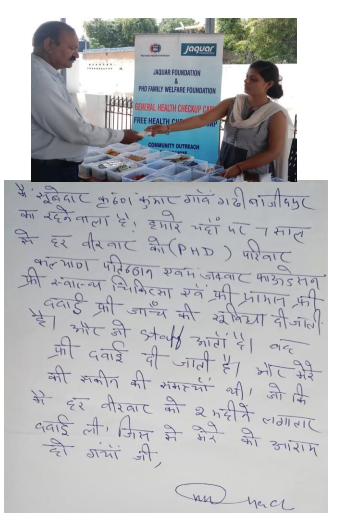 JAQUAR
JAQUAR FOUNDATION
&
PHD FAMILY WELFARE FOUNDATION
GENERAL HEALTH CHECKUP CAMP
FREE HEALTH CHECKUP CAMP
COMMUNITY OUTREACH
मैं सूबेदार कृष्ण कुमार गाँव गढी वाजीदपुर
का रहने वाला है। हमारे यहाँ पर 7 साल
से हर वीरवार को (PHD) परिवार
कल्याण प्रतिष्ठान एवम जकवार फाऊंडेसन
फ्री स्वास्थ्य चिकित्सा एवं फ्री
दवाई फ्री जाँच की सुविधा दी जाती
है। और जो Staff आता है। वह
फ्री दवाई दी जाती है। और मेरे
को स्कीन की समस्या थी। जो कि
मैं हर वीरवार को 2 महीने लगातार
दवाई ली। जिस से मेरे को आराम
हो गया जी,